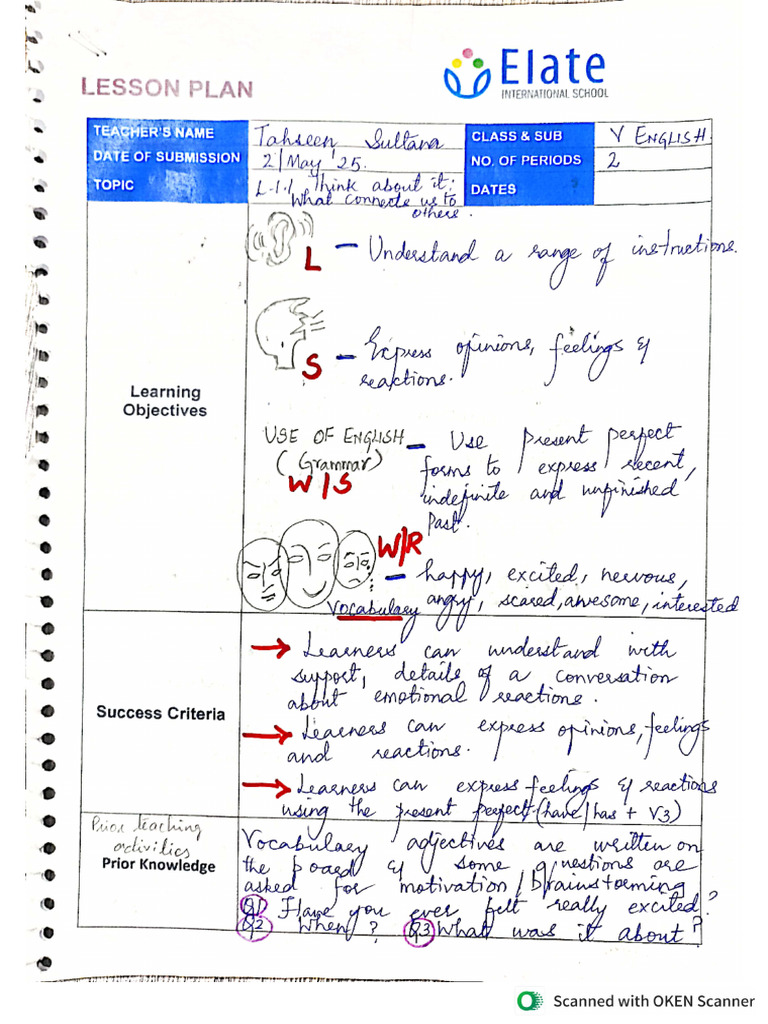 LESSON PLAN
Elate
INTERNATIONAL SCHOOL
TEACHER'S NAME
Tahseen Sultana
CLASS & SUB
V ENGLISH
DATE OF SUBMISSION
2/May '25.
NO. OF PERIODS
2
TOPIC
L-1.1, Think about it:
What connects us to
others.
DATES
Learning
Objectives
L - Understand a range of instructions.
S - Express opinions, feelings &
reactions.
USE OF ENGLISH
(Grammar)
W/S
- Use Present perfect
forms to express recent,
indefinite and unfinished
Past.
W/R
- happy, excited, nervous,
Vocabulary
angry, scared, awesome, interested
Success Criteria
→ Learners can understand with
support, details of a conversation
about emotional reactions.
→ Learners can express opinions, feelings
and reactions.
→ Learners can express feelings & reactions
using the present perfect (have/has + V3)
Prior teaching
activities
Prior Knowledge
Vocabulary adjectives are written on
the board & some questions are
asked for motivation/brainstorming
Q1 Have you ever felt really excited?
Q2 When? Q3 What was it about?
Scanned with OKEN Scanner